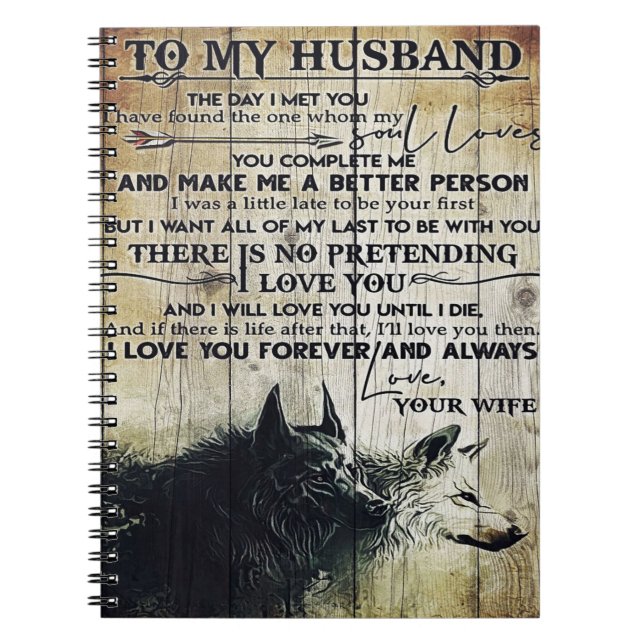 TO MY HUSBAND
THE DAY I MET YOU
I have found the one whom my
soul loves
YOU COMPLETE ME
AND MAKE ME A BETTER PERSON
I was a little late to be your first
BUT I WANT ALL OF MY LAST TO BE WITH YOU
THERE IS NO PRETENDING
I LOVE YOU
AND I WILL LOVE YOU UNTIL I DIE,
And if there is life after that, I'll love you then.
I LOVE YOU FOREVER AND ALWAYS
Love,
YOUR WIFE